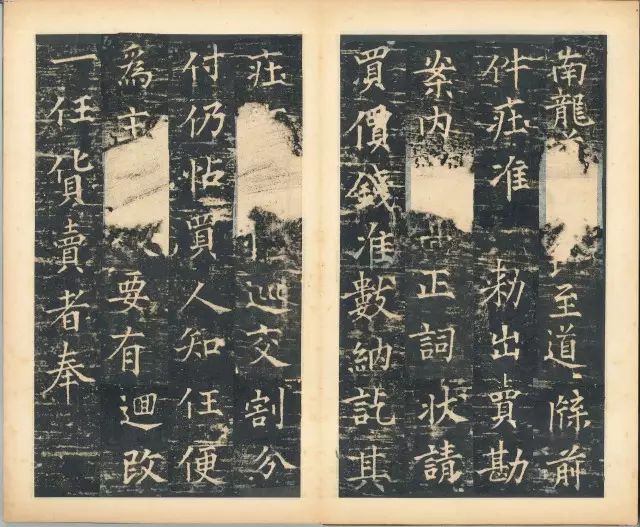 南龍 至道 牒前
件莊准 勑出賣勘
案內 正詞狀請
買價錢准數納訖其
莊 巡交割分
付仍帖買人知任便
爲主 要有迴改
一任貨賣者奉